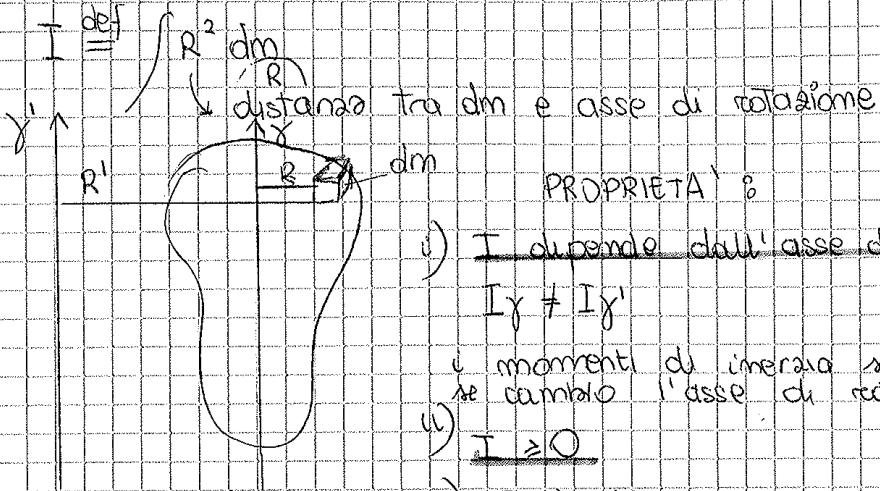 I def = ∫ R² dm
R
distanza tra dm e asse di rotazione
γ'
γ
R'
R
dm
PROPRIETA':
i) I dipende dall'asse d
Iγ ≠ Iγ'
i momenti di inerzia s
se cambio l'asse di
ii)
I ≥ 0